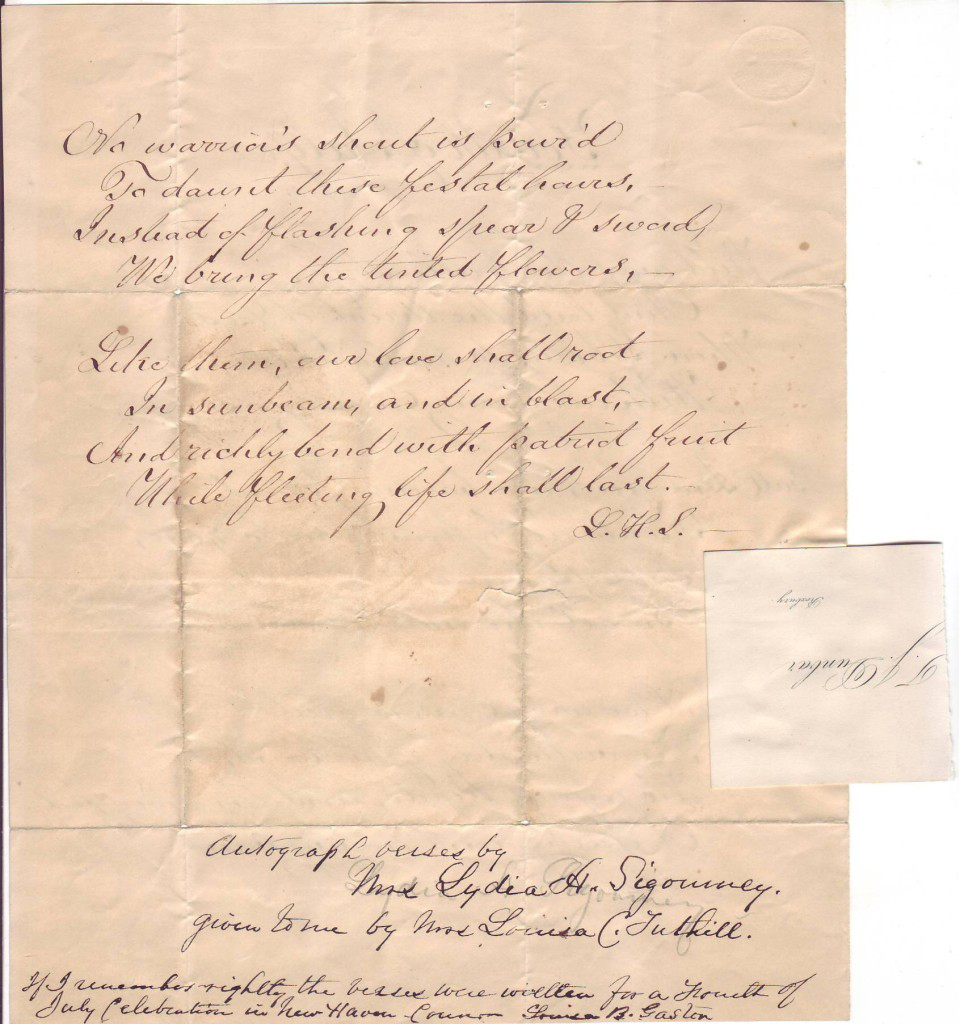 No warrior's shout is pour'd
To daunt these festal hours, –
Instead of flashing spear & sword,
We bring the tinted flowers, –
Like them, our love shall root
In sunbeam, and in blast, –
And richly bend with patriot fruit
While fleeting life shall last. –
L. H. S. –
T. J. Dunbar
Roxbury.
Autograph verses by
Mrs Lydia H. Sigourney.
given to me by Mrs Louisa C. Tuthill.
If I remember rightly the verses were written for a Fourth of
July Celebration in New Haven Louisa B. Gaston